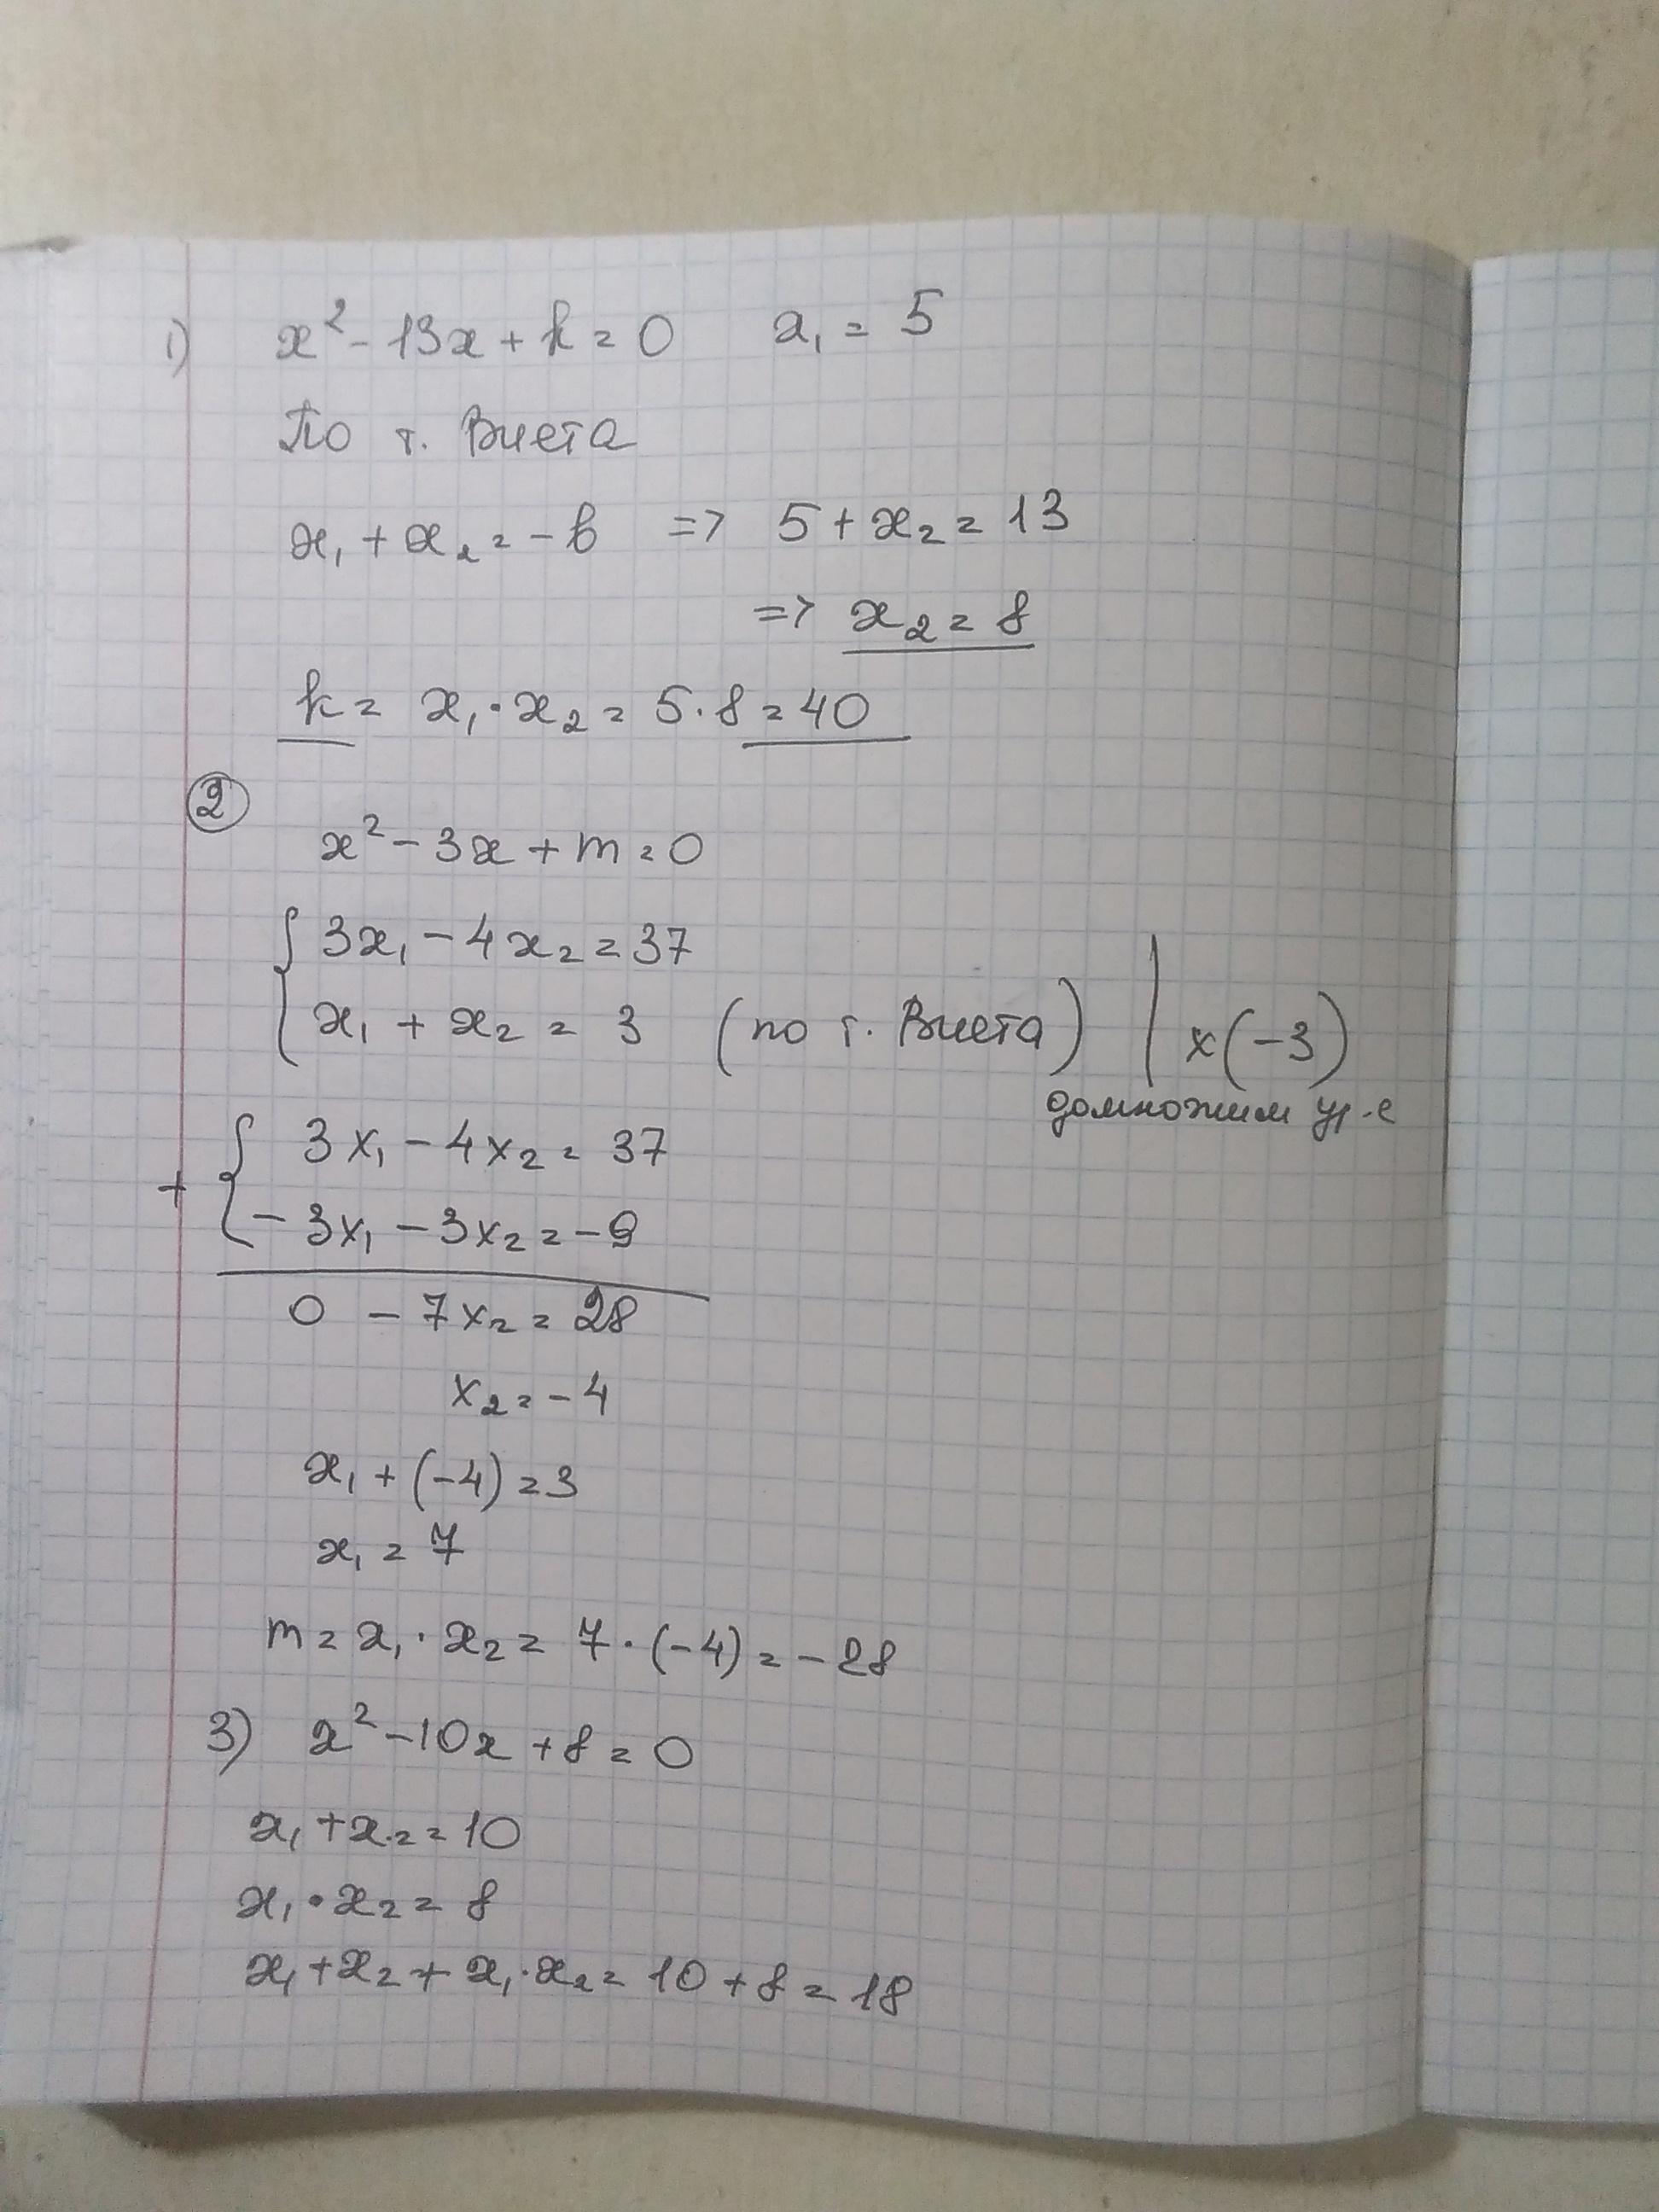 1) x² - 13x + k = 0 x₁ = 5
По т. Виета
x₁ + x₂ = -b => 5 + x₂ = 13
=> x₂ = 8
k = x₁ · x₂ = 5 · 8 = 40
2
x² - 3x + m = 0
{ 3x₁ - 4x₂ = 37
x₁ + x₂ = 3 (по т. Виета) | x(-3)
домножим ур-е
+ { 3x₁ - 4x₂ = 37
-3x₁ - 3x₂ = -9
0 - 7x₂ = 28
x₂ = -4
x₁ + (-4) = 3
x₁ = 7
m = x₁ · x₂ = 7 · (-4) = -28
3) x² - 10x + 8 = 0
x₁ + x₂ = 10
x₁ · x₂ = 8
x₁ + x₂ + x₁ · x₂ = 10 + 8 = 18